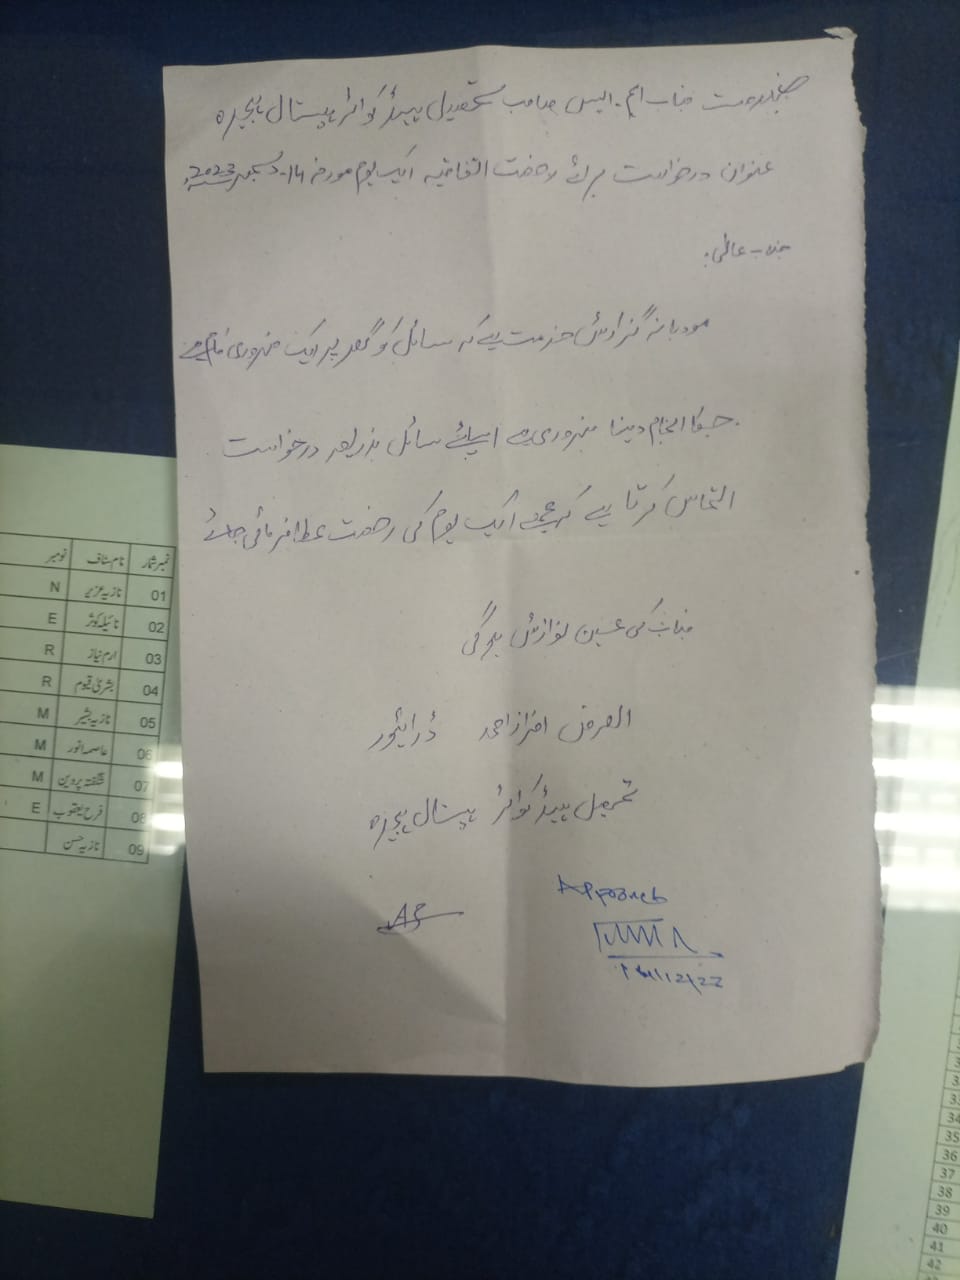 بخدمت جناب ایم۔ ایس صاحب تحصیل ہیڈ کوائر ہسپتال ہجیرہ
عنوان درخواست برائے رخصت اتفاقیہ ایک یوم مورخہ 14۔ دسمبر 2023
جناب عالی۔
مودبانہ گزارش خدمت ہے کہ سائل کو گھر پر ایک ضروری کام ہے
جسکا انجام دینا ضروری ہے اسلئے سائل بذریعہ درخواست
التماس کرتا ہے کہ مجھے ایک یوم کی رخصت عطا فرمائی جائے
جناب کی عین نوازش ہو گی
العرض افراز احمد ڈرائیور
تحصیل ہیڈ کوائر ہسپتال ہجیرہ
نمبر شمار نام سٹاف نومبر
01 نازیہ عزیز N
02 نائیلہ کوثر E
03 ارم نیاز R
04 بشریٰ قیوم R
05 نازیہ بشیر M
06 عاصمہ انور M
07 شگفتہ پروین M
08 فرح یعقوب E
09 نازیہ حسن
33
34
35
36
37
38
39
40
41
42